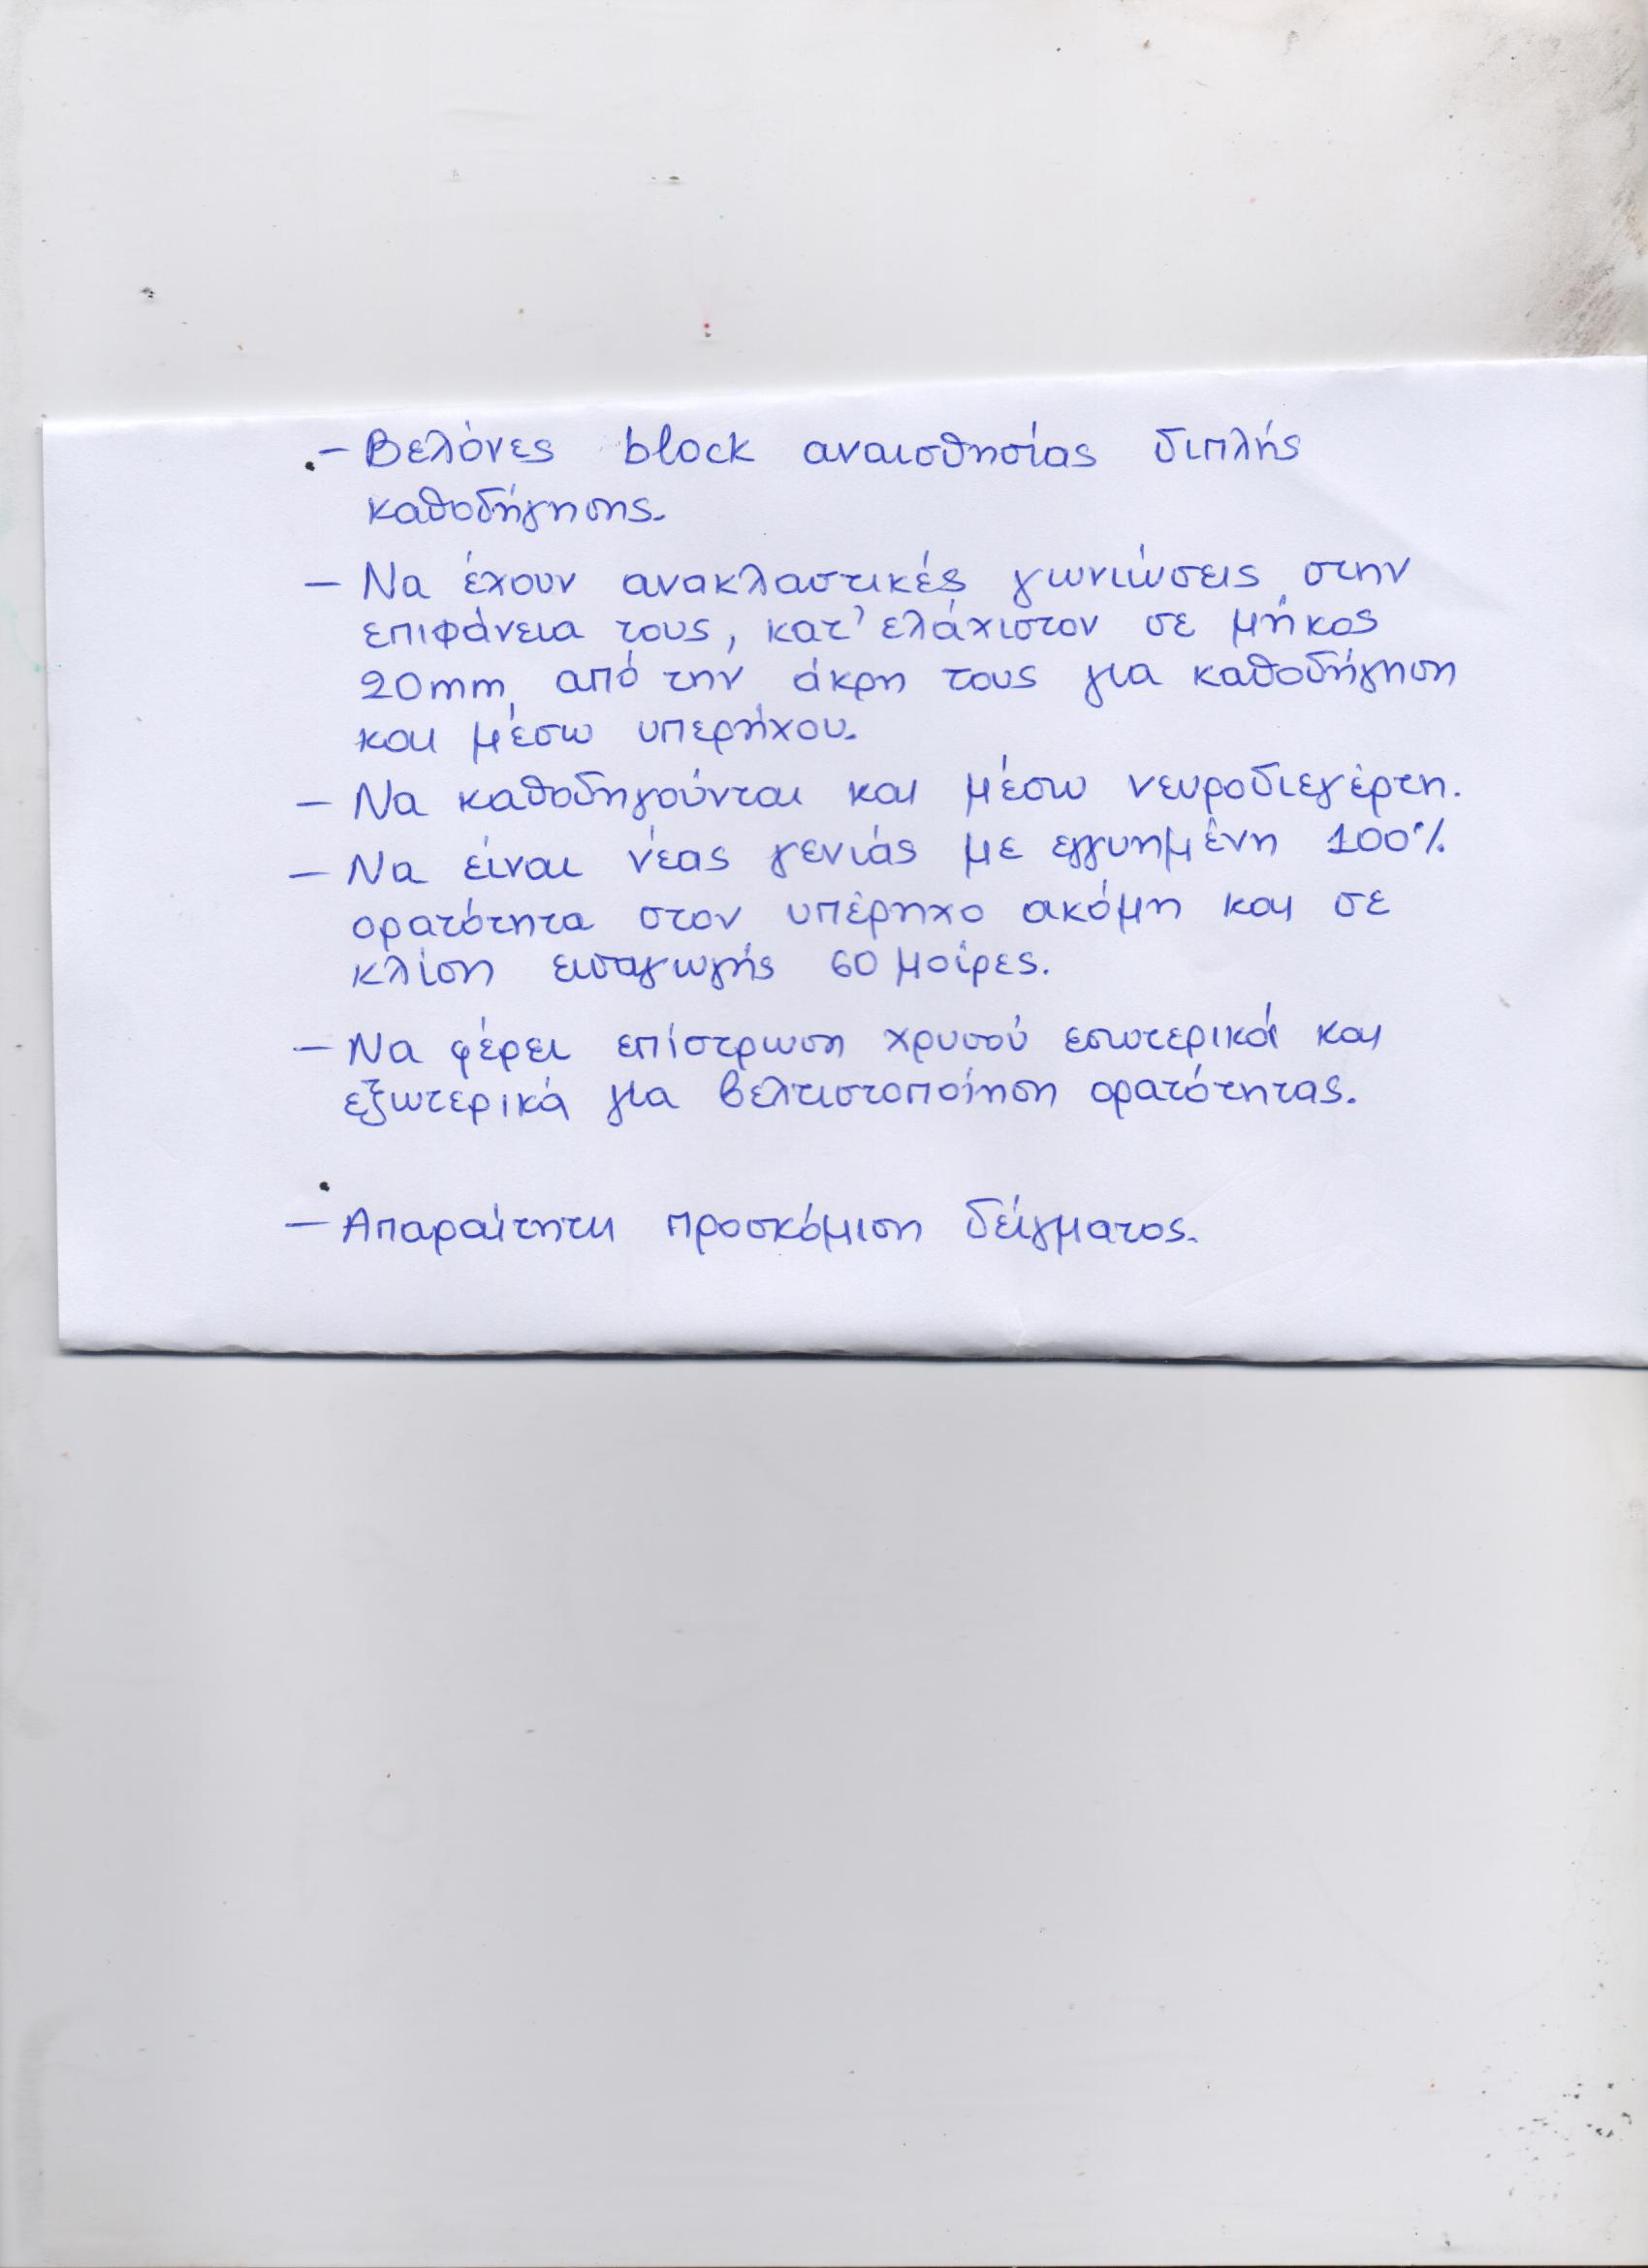 - Βελόνες block αναισθησίας διπλής
καθοδήγησης.
- Να έχουν ανακλαστικές γωνιώσεις στην
επιφάνεια τους, κατ' ελάχιστον σε μήκος
20mm από την άκρη τους για καθοδήγηση
και μέσω υπερήχου.
- Να καθοδηγούνται και μέσω νευροδιεγέρτη.
- Να είναι νέας γενιάς με εγγυημένη 100%
ορατότητα στον υπέρηχο ακόμη και σε
κλίση εισαγωγής 60 μοίρες.
- Να φέρει επίστρωση χρυσού εσωτερικά και
εξωτερικά για βελτιστοποίηση ορατότητας.
- Απαραίτητη προσκόμιση δείγματος.